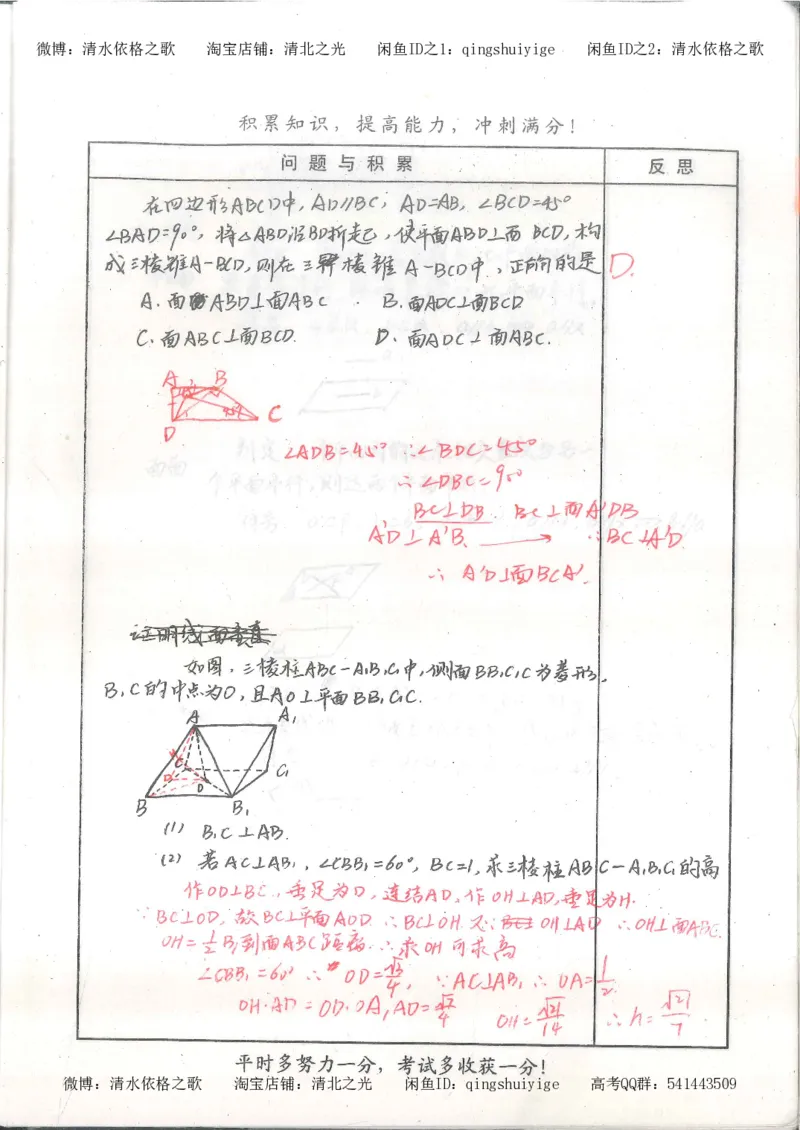 微博: 清水依格之歌 淘宝店铺: 清北之光 闲鱼ID之1: qingshuiyige 闲鱼ID之2: 清水依格之歌
积累知识，提高能力，冲刺满分！
问题与积累 反思
在四边形ABCD中, AD//BC, AD=AB, ∠BCD=45°
∠BAD=90°, 将△ABD沿BD折起, 使平面ABD⊥面BCD, 构
成三棱锥A-BCD, 则在三棱锥A-BCD中, 正确的是 D.
A. 面ABD⊥面ABC B. 面ADC⊥面BCD
C. 面ABC⊥面BCD. D. 面ADC⊥面ABC.
A B
45° C
D
∠ADB=45° ∴∠BDC=45°
∴∠DBC=90°
BC⊥DB BC⊥面A'DB
A'D⊥A'B. → ∴BC⊥A'D
∴ A'D⊥面BCA'.
证明线面垂直
如图, 三棱柱ABC-A₁B₁C₁中, 侧面BB₁C₁C为菱形,
B₁C的中点为O, 且AO⊥平面BB₁C₁C.
A A₁
H
C C₁
D O
B B₁
(1) B₁C⊥AB.
(2) 若AC⊥AB₁, ∠CBB₁=60°, BC=1, 求三棱柱ABC-A₁B₁C₁的高
作OD⊥BC, 垂足为D, 连结AD, 作OH⊥AD, 垂足为H.
∵BC⊥OD, 故BC⊥平面AOD ∴BC⊥OH 又∵ OH⊥AD ∴OH⊥面ABC.
OH=½B₁到面ABC距离 ∴求OH可求高
∠CBB₁=60° ∴ OD=√3/4, ∵AC⊥AB₁ ∴OA=1/2
OH·AD=OD·OA, AD=√7/4 OH=√21/14 ∴h=√21/7.
平时多努力一分，考试多收获一分！
微博: 清水依格之歌 淘宝店铺: 清北之光 闲鱼ID: qingshuiyige 高考QQ群: 541443509